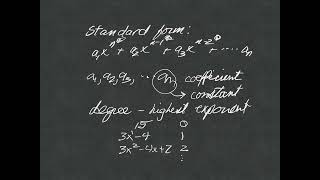 standard form:
a₁xⁿ + a₂xⁿ⁻¹ + a₃xⁿ⁻² + .... aₙ
a₁, a₂, a₃, .. aₙ coefficient
constant
degree - highest exponent
15 0
3x¹-4 1
3x²-4x+2 2
: